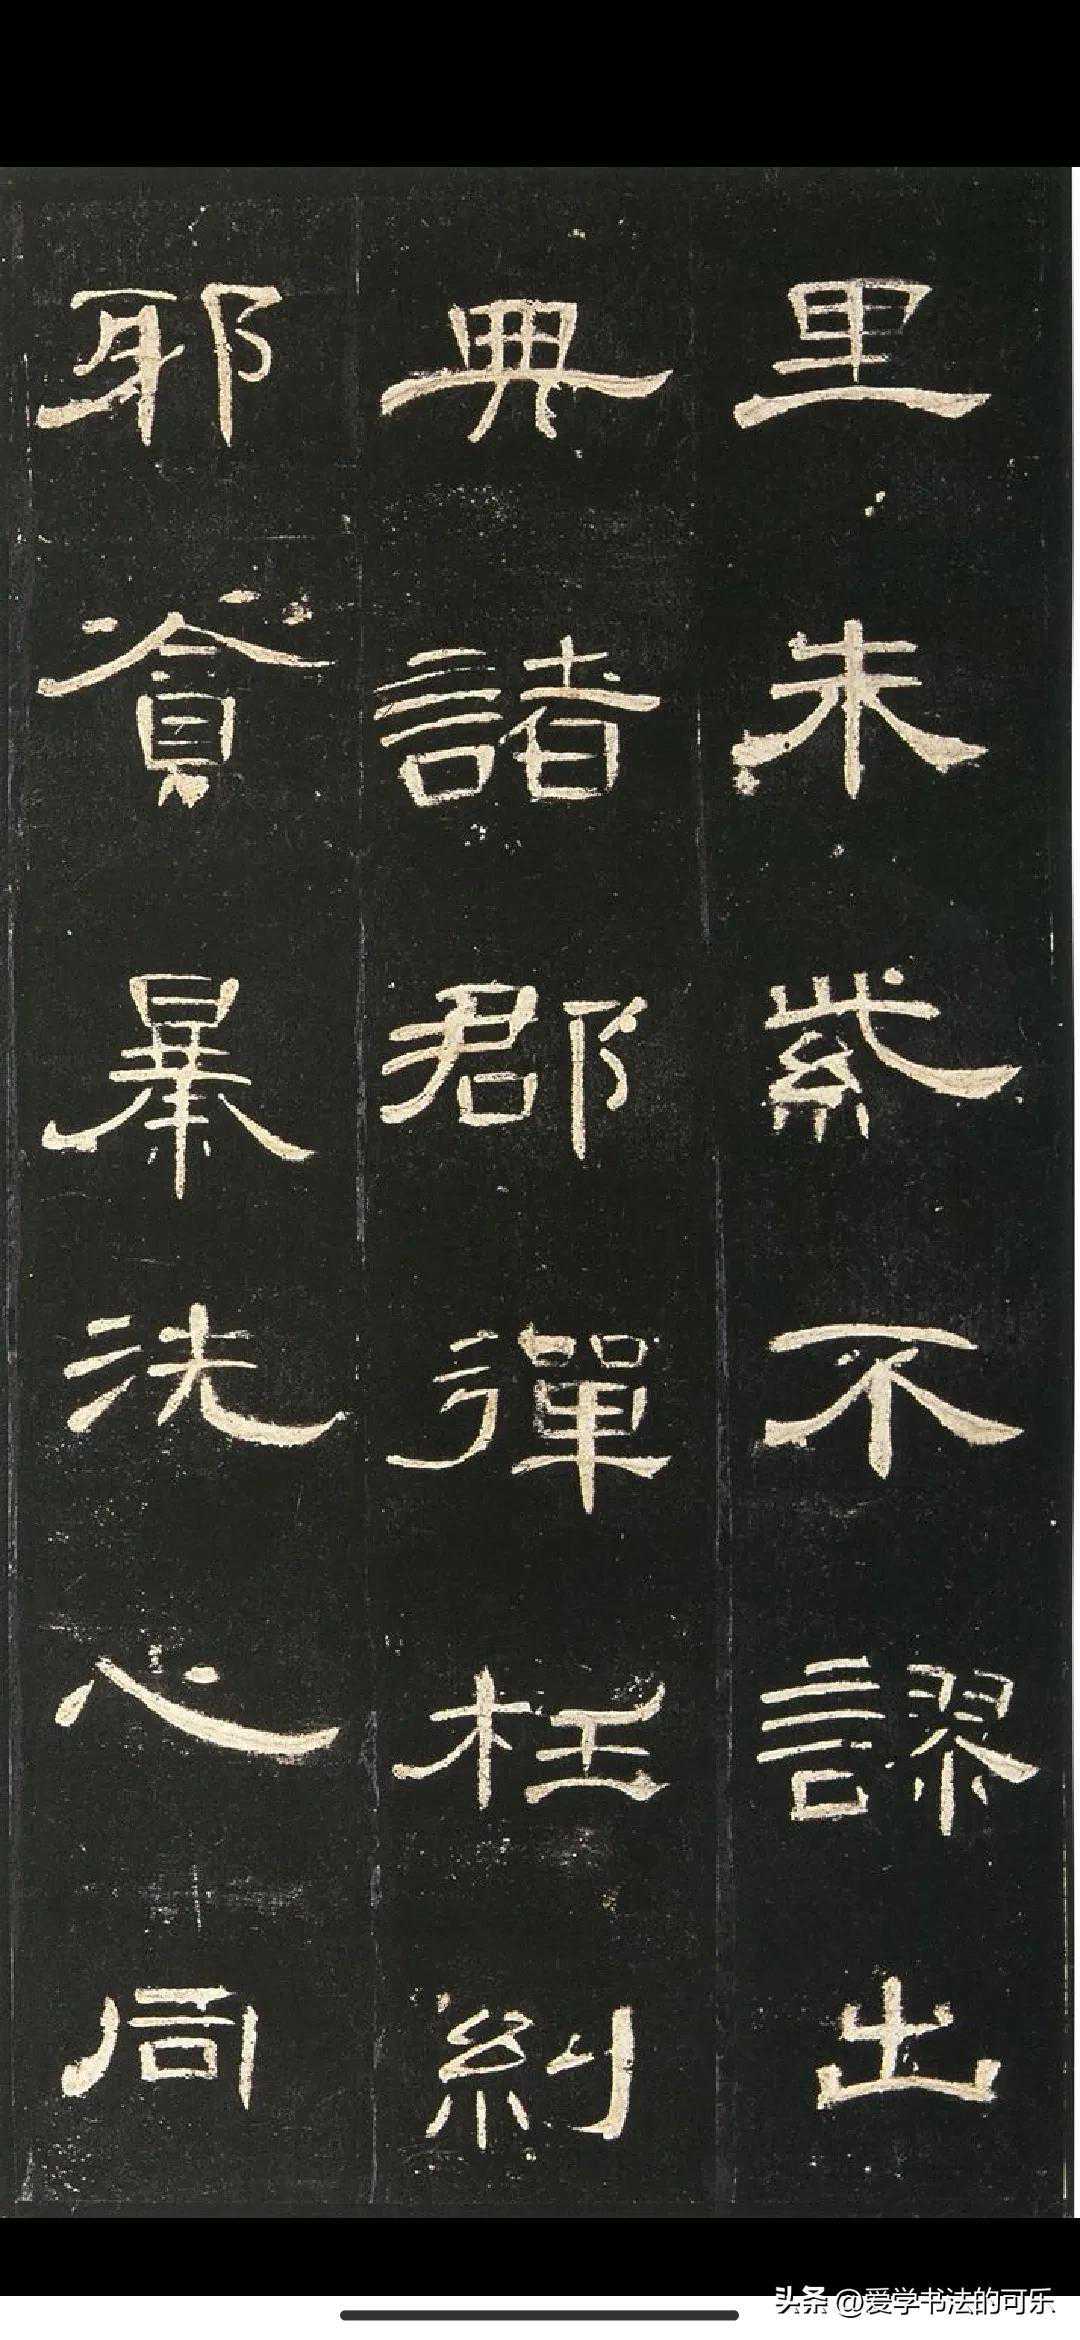 里朱紫不謬出
典諸郡彈枉糾
邪貪暴洗心同
头条 @爱学书法的可乐